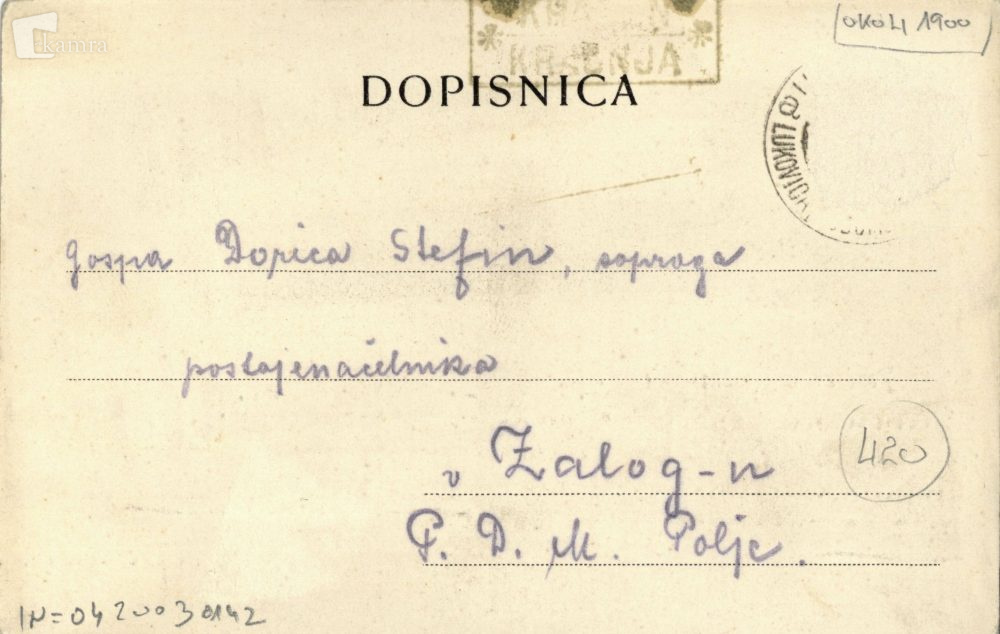 kamra
KRAŠNJA
OKOLI 1900
DOPISNICA
LUKOVICA
gospa Dorica Stefin, soproga
postajenačelnika
420
v Zalog-u
P. D. M. Polje.
IN=0420030142